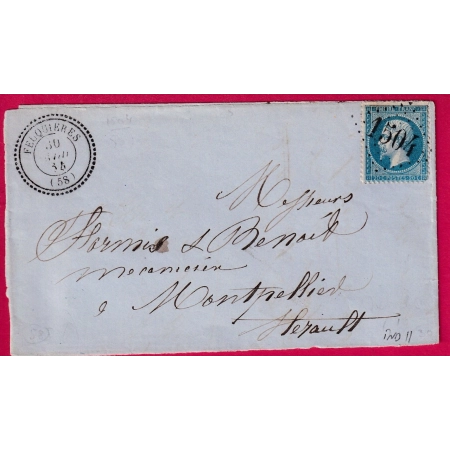 FEUQUIERES
(58)
1504
Messieurs
Formis & Benoit
mecanicien
a Montpellier
Hérault
IND 11